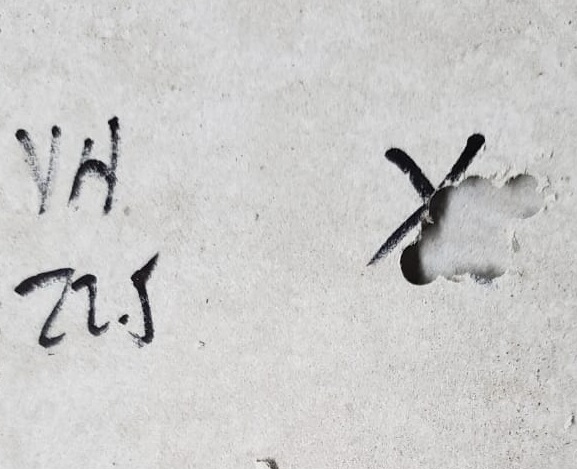 VH X
22.5